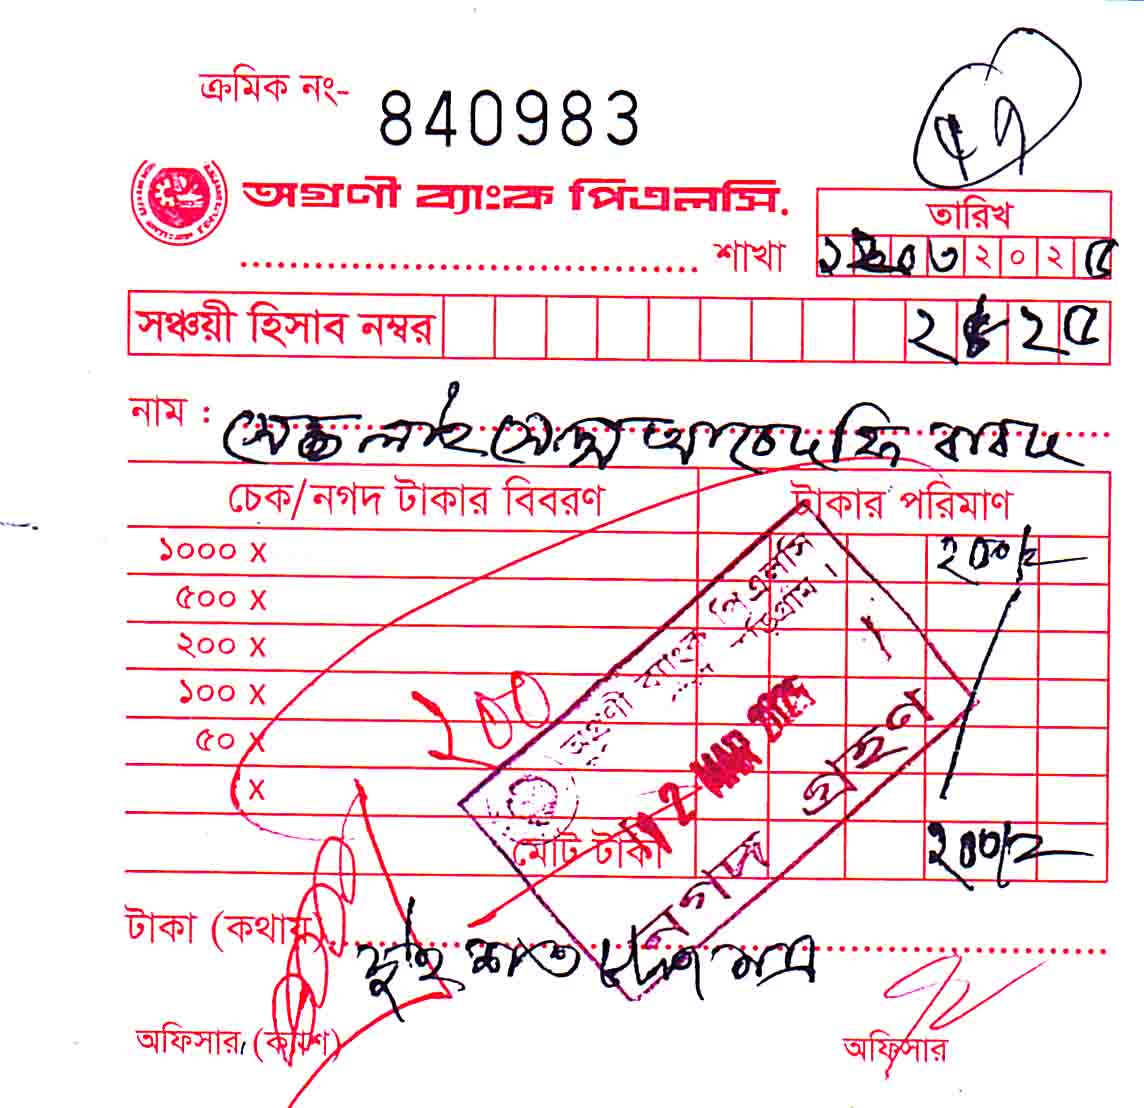 ক্রমিক নং- 840983
৫৭
অগ্রণী ব্যাংক পিএলসি.
তারিখ
শাখা
১২০৩২০২৫
সঞ্চয়ী হিসাব নম্বর ২৫২৫
নাম : আবেদন ফি বাবদ
চেক/নগদ টাকার বিবরণ টাকার পরিমাণ
১০০০ X ২০০/-
৫০০ X
২০০ X
১০০ X
৫০ X
X
২০০
অগ্রণী ব্যাংক পিএলসি
কুড়িগ্রাম।
12 MAR 2025
নগদ গ্রহণ
মোট টাকা ২০০/-
টাকা (কথায়)
দুই শত টাকা মাত্র
অফিসার (ক্যাশ) অফিসার